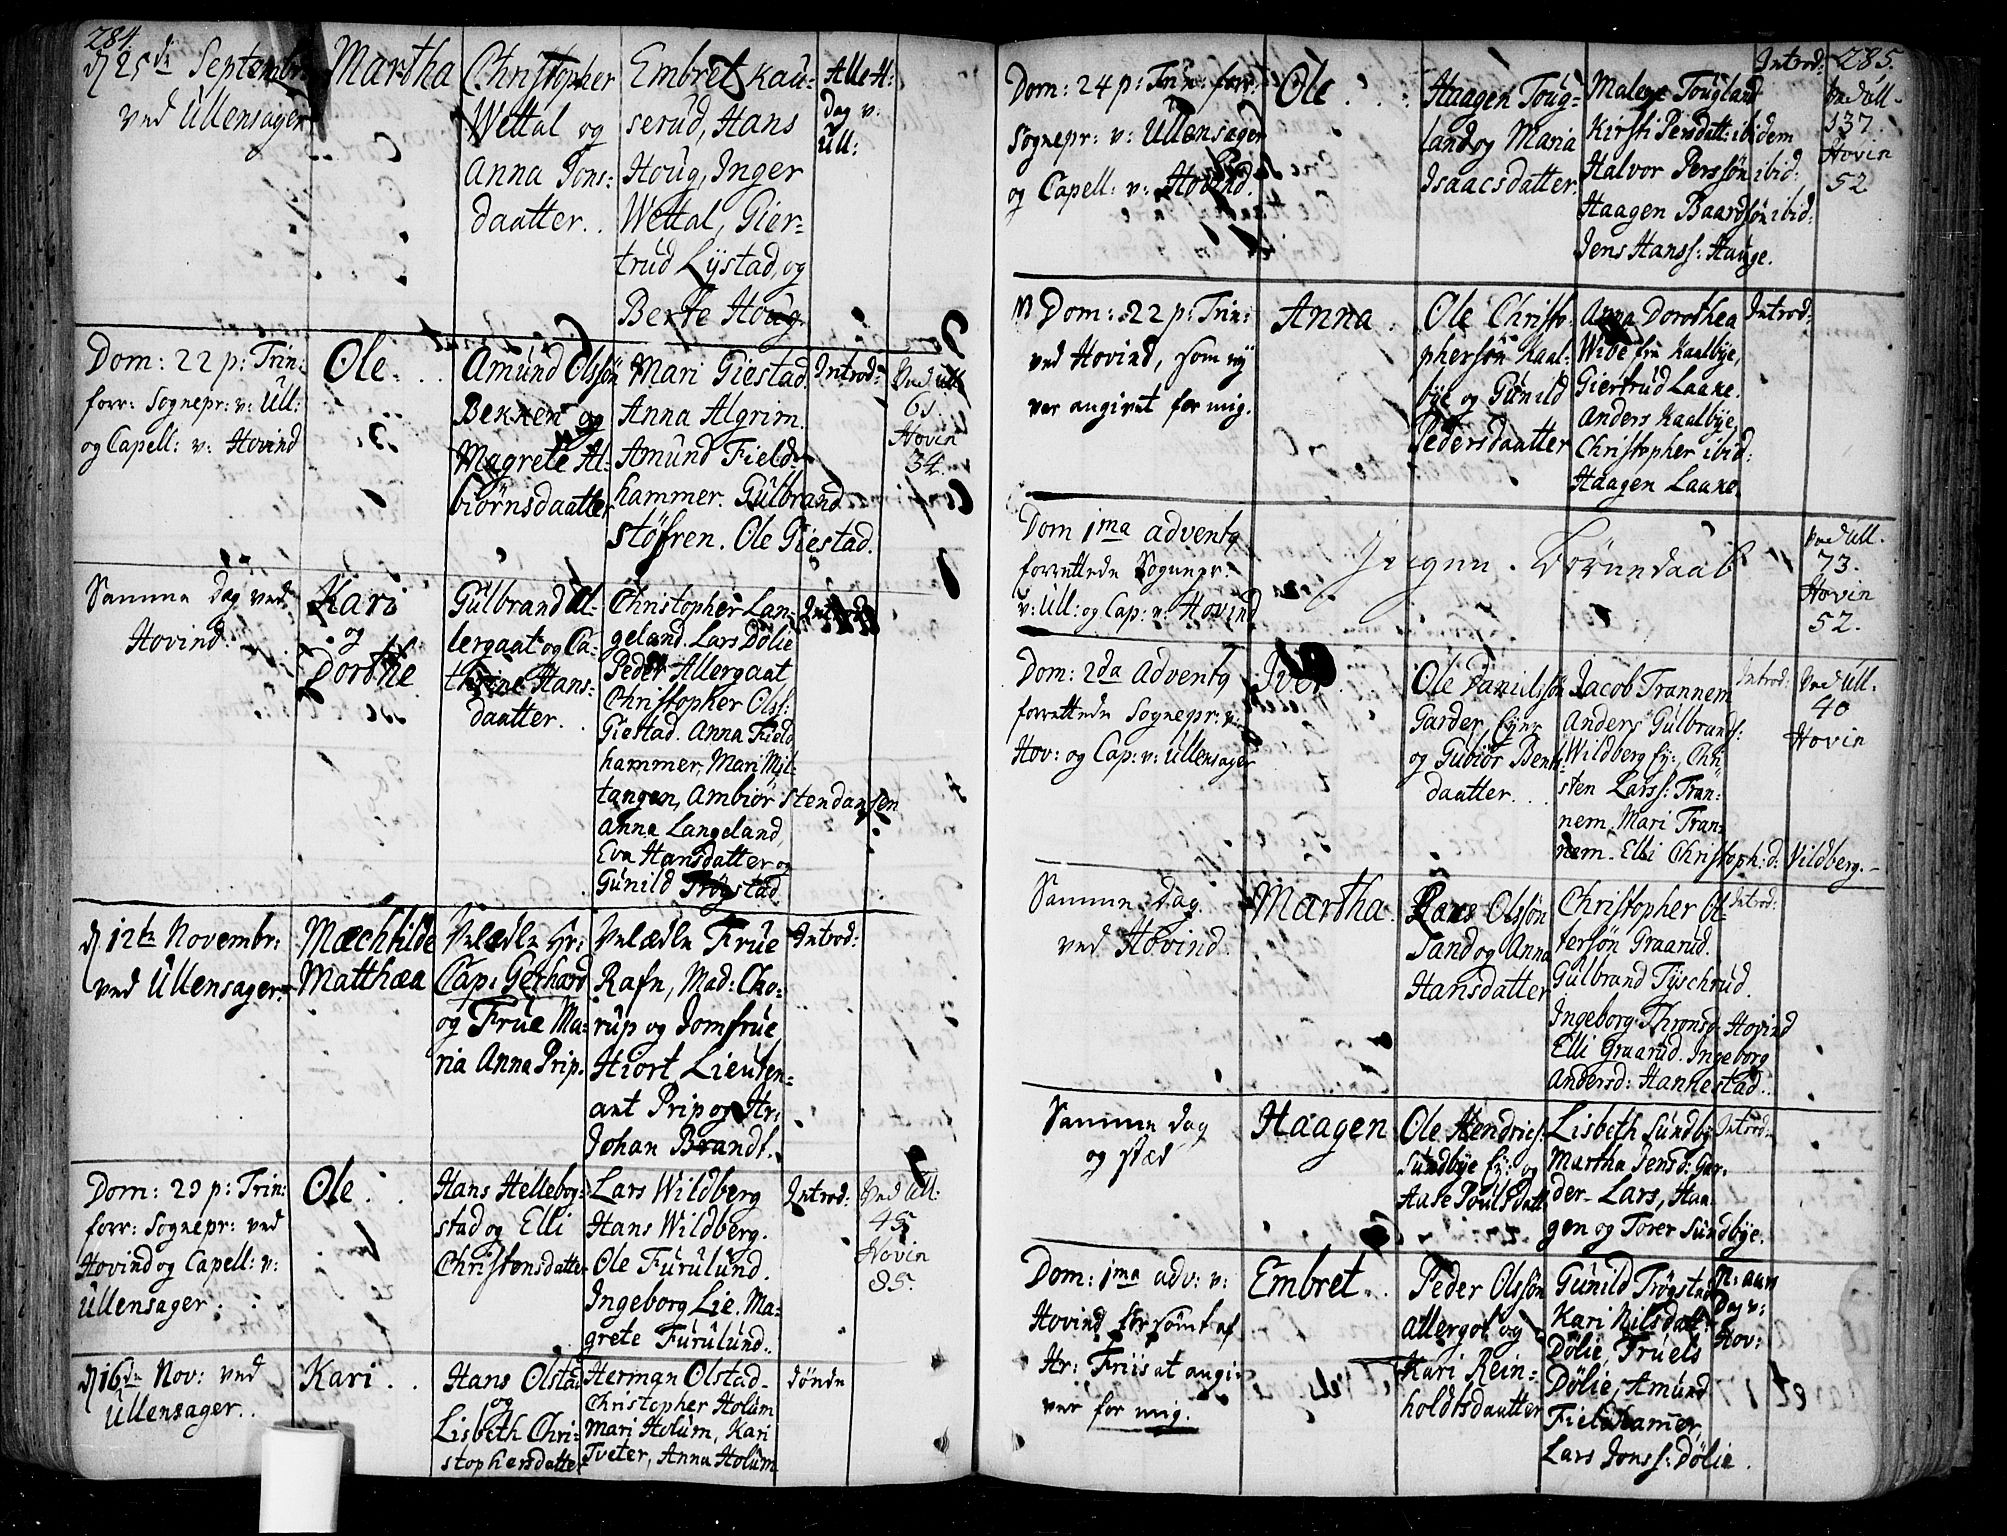 284.
d 25de Septembr:
ved Ullensager
Martha
Christopher
Wettal og
Anna Jons:
daatter.
Embret Kau:
serud, Hans
Houg, Inger
Wettal, Gier-
trud Lystad, og
Berte Houg.
Alle H:
Dag v:
Ull:
Dom: 22 p: Trin:
forr: Sognepr: v: Ull:
og Capell: v: Hovind
Ole.
Amund Olssön
Bekken og
Magrete Al-
biörnsdaatter
Mari Giestad
Anna Algrim.
Amund Field-
hammer. Gulbrand
Stöfren. Ole Giestad.
Introd:
Ved Ull.
61.
Hovin
34.
Samme Dag ved
Hovind.
Kari
og
Dorthe
Gulbrand Al-
lergaat og Ca-
thrine Hans-
daatter.
Christopher Lan-
geland. Lars Dölie
Peder Allergaat
Christopher Olss:
Giestad. Anna Field
hammer, Mari Mil-
tangen, Ambiör Stendansen
Anna Langeland,
Eva Hansdatter og
Gunild Trögstad.
d 12te Novembr:
ved Ullensager.
Mæchtilde
Matthæa
Velædle Hr:
Cap: Gerhard
og Frue Ma-
ria Anna Prip.
Velædle Frue
Rafn, Mad: Cho-
rup og Jomfrue
Hiort Lieuten-
ant Prip og Hr:
Johan Brandt.
Introd:
Dom: 23 p: Trin:
forr: Sognepr: ved
Hovind og Capell: v:
Ullensager.
Ole.
Hans Hellebor-
stad og Elli
Christensdatter
Lars Wildberg
Hans Wildberg.
Ole Furulund.
Ingeborg Lie. Ma-
grete Furulund.
Introd:
Ved Ull:
45.
Hovin
35.
d 16de Nov: ved
Ullensager.
Kari.
Hans Olstad
og
Lisbeth Chri-
stophersdatter
Herman Olstad
Christopher Holum
Mari Holum, Kari
Tveter, Anna Holum
Dönde
285.
Dom: 24 p: Trin: forr:
Sognepr: v: Ullensager
og Capell: v: Hovind.
Ole.
Haagen Toug-
land og Maria
Isaacsdatter.
Malene Tougland
Kirsti Persdatt: ibidem
Halvor Perssön ibid:
Haagen Baardsön ibid:
Jens Hanss: Hauge.
Introd:
Ved Ull.
137.
Hovin
52
Dom: 22 p: Trin:
ved Hovind, som ey
var angivet for mig.
Anna.
Ole Christo-
phersön Kaal-
bye og Gunild
Pedersdaatter
Anna Dorothea
Wibe fra Kaalbye,
Giertrud Laake.
Anders Kaalbye,
Christopher ibid:
Haagen Laake.
Introd:
Dom 1ma Advent
forrettede Sognepr:
v: Ull: og Cap: v: Hovind
Ingen Börnedaab
Ved Ull.
73.
Hovin
52.
Dom: 2da Advent
forrettede Sognepr: v:
Hov: og Cap: v: Ullensager
Iver
Ole Danielssön
Garder, Eyer
og Gubiör Bents-
daatter.
Jacob Trannem
Anders Gulbrands:
Wildberg Ey:, Chri-
sten Larss: Tran-
nem. Mari Tran-
nem. Elli Christoph: d: Vildberg.
Introd:
Ved Ull.
40
Hovin
Samme Dag
ved Hovind.
Martha
Lars Olssön
Sand og Anna
Hansdatter
Christopher Ol-
sersön Graarud.
Gulbrand Tyschrud.
Ingeborg Thronsd: Hovind
Elli Graarud. Ingeborg
Andersd: Hannestad.
Introd:
Samme Dag
og Stæd
Haagen
Ole Hendrichs:
Sundbye Ey: og
Aase Poulsdatt:
Lisbeth Sundby
Martha Jensd: Gar-
der. Lars, Haa-
gen og Torer Sundbye.
Introd:
Dom: 1ma Adv: v:
Hovind forsömt af
Hr: Friis at angi-
ver for mig.
Embret.
Peder Olssön
Allergot og
Kari Rein-
holdtsdaatter
Gunild Trögstad
Kari Nilsdatt:
Dölie, Truels
Dölie, Amund
Fieldhamer,
Lars Jonss: Dölie.
N: aars
Dag v:
Hov: